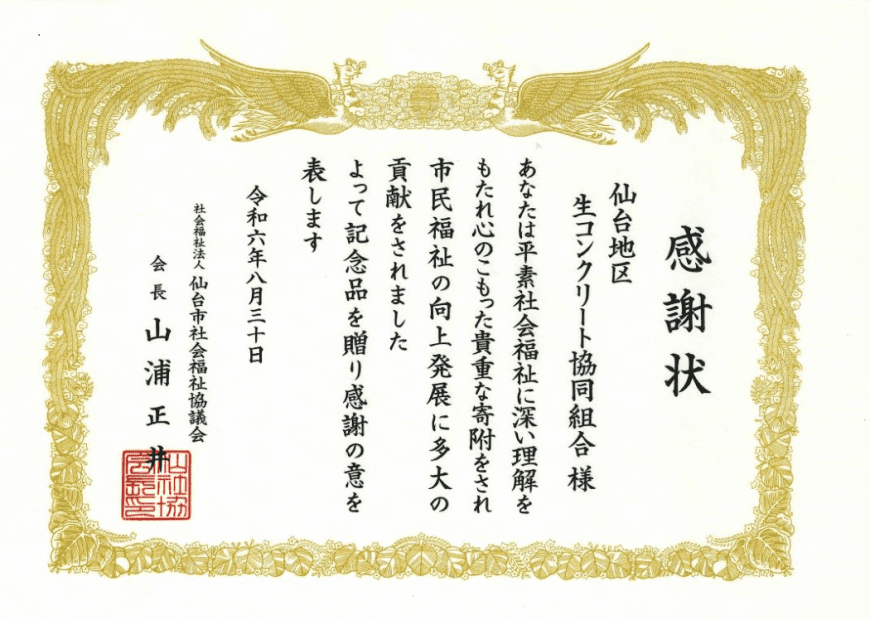 感謝状
仙台地区
生コンクリート協同組合 様
あなたは平素社会福祉に深い理解を
もたれ心のこもった貴重な寄附をされ
市民福祉の向上発展に多大の
貢献をされました
よって記念品を贈り感謝の意を
表します
令和六年八月三十日
社会福祉法人 仙台市社会福祉協議会
会長 山浦正井